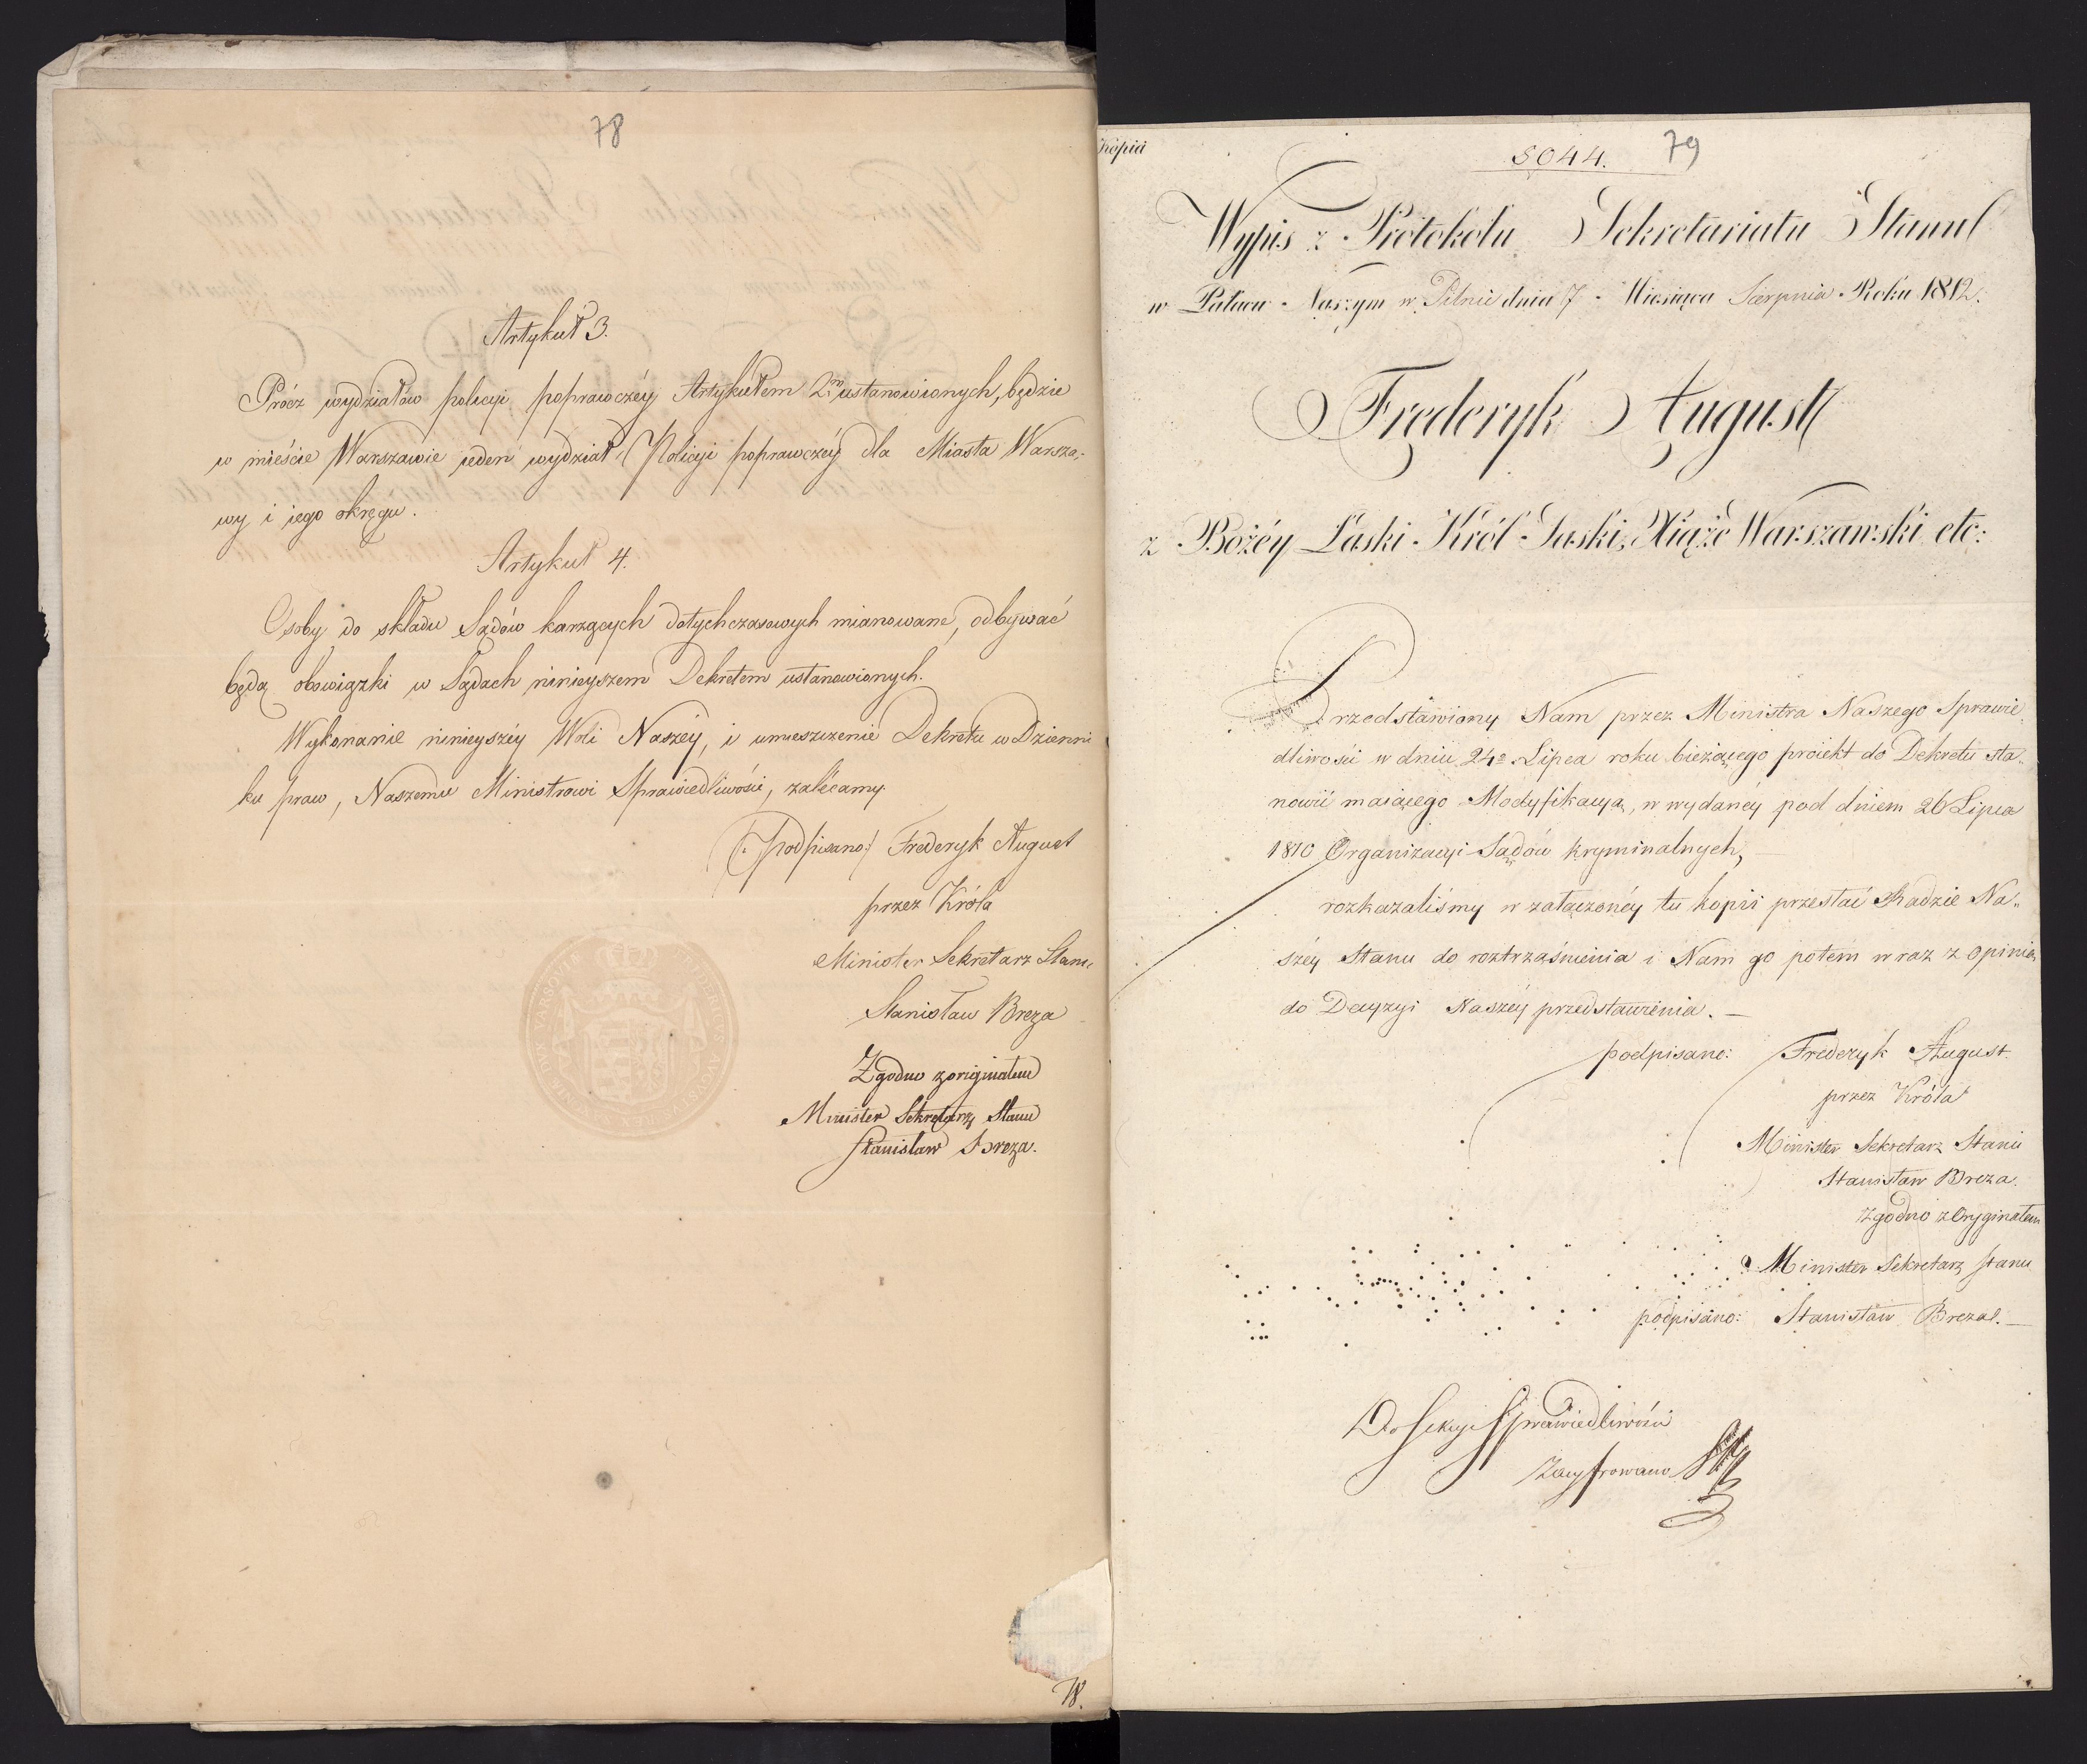 78
Artykuł 3.
Prócz wydziałów policyi poprawczéy Artykułem 2m ustanowionych, będzie
w mieście Warszawie ieden wydział Policyi poprawczéy dla Miasta Warsza-
wy i iego okręgu.
Artykuł 4.
Osoby do składu Sądów karzących dotychczasowych mianowane, odbywać
będą obowiązki w Sądach ninieyszem Dekretem ustanowionych.
Wykonanie ninieyszéy Woli Naszéy, i umieszczenie Dekretu w Dzienni
ku praw, Naszemu Ministrowi Sprawiedliwości, zalécamy.
(:podpisano:) Frederyk August
przez Króla
Minister Sekretarz Stanu
Stanisław Breza
Zgodno z originałem
Minister Sekretarz Stanu
Stanisław Breza.
W.
Kopia
5044. 79
Wypis z Protokołu Sekretariatu Stanu
w Pałacu Naszym w Pilnic dnia 7 Miesiąca Sierpnia Roku 1812.
Fryderyk August
z Bożéy Łaski Król Saski, Xiąże Warszawski etc:
Przedstawiony Nam przez Ministra Naszego Sprawie
dliwości w dniu 24o Lipca roku bieżącego proiekt do Dekretu sta„
nowić maiącego Modyfikacyą, w wydanéy pod dniem 26 Lipca
1810 Organizacyi Sądów kryminalnych,
rozkazaliśmy w załączonéy tu kopii przesłać Radzie Na„
széy Stanu do roztrząśnienia i Nam go potem wraz z opinią
do Decyzyi Naszéy przedstawienia. —
podpisano: Frederyk August.
przez Króla
Minister Sekretarz Stanu
Stanisław Breza.
Zgodno z Oryginałem
Minister Sekretarz Stanu
podpisano: Stanisław Breza. —
Do Sekcyi Sprawiedliwości
Zacyfrowano